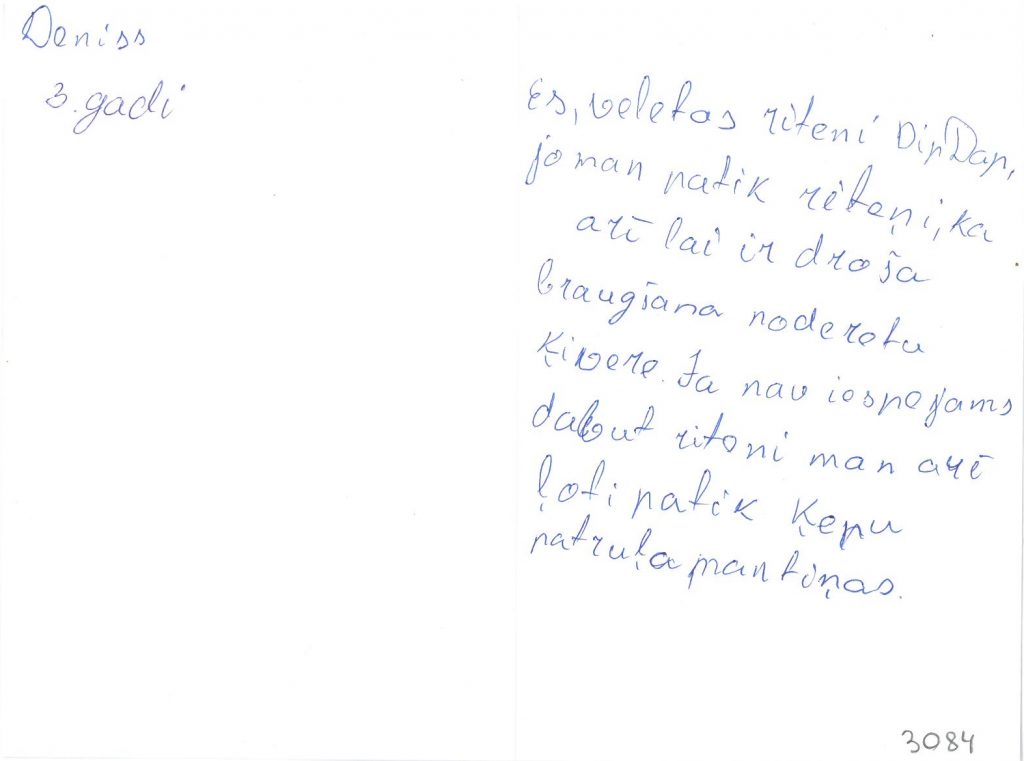 Deniss
3. gadi
Es, veletas riteni DipDap,
jo man patik rēteņi, ka
arī lai ir droša
braugšana noderetu
ķivere. Ja nav iespejams
dabut ritoni man arī
ļoti patik Ķepu
patruļa mantiņas.
3084